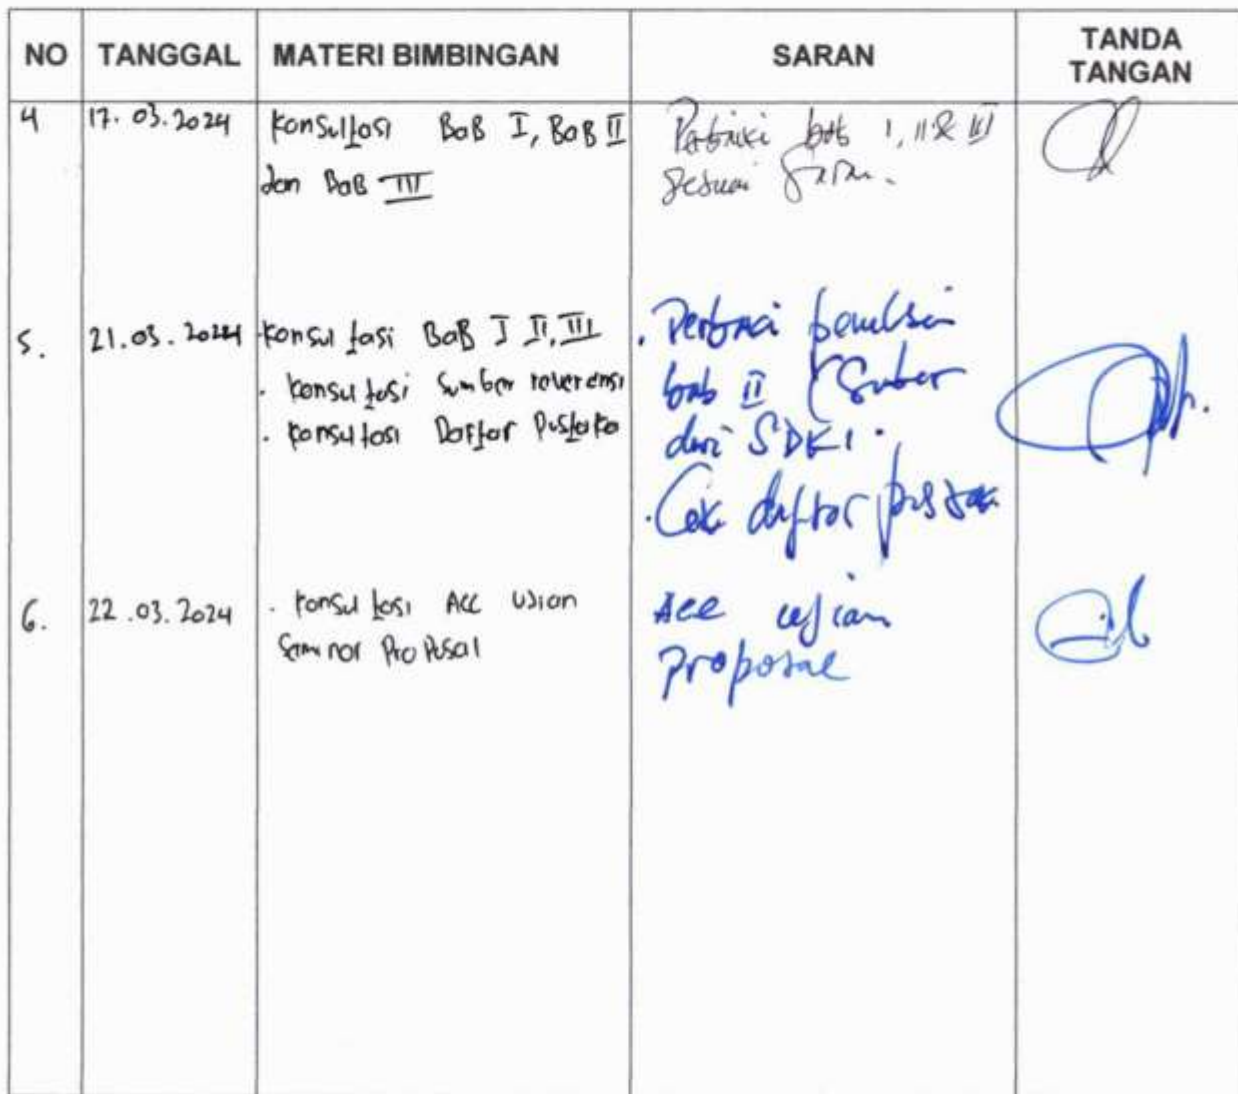 NO TANGGAL MATERI BIMBINGAN SARAN TANDA TANGAN
4 17.03.2024 Konsultasi BaB I, BaB II
dan BaB III
Perbaiki bab I, II & III
sesuai saran.
5. 21.03.2024 Konsultasi BaB I II, III
. Konsultasi Sumber reverensi
. Konsultasi Daftar Pustaka
. Perbaiki penulisan
bab II (Sumber
dari SDKI.
. Cek daftar pustaka
6. 22.03.2024 . Konsultasi Acc Ujian
Seminar Proposal
Acc ujian
proposal